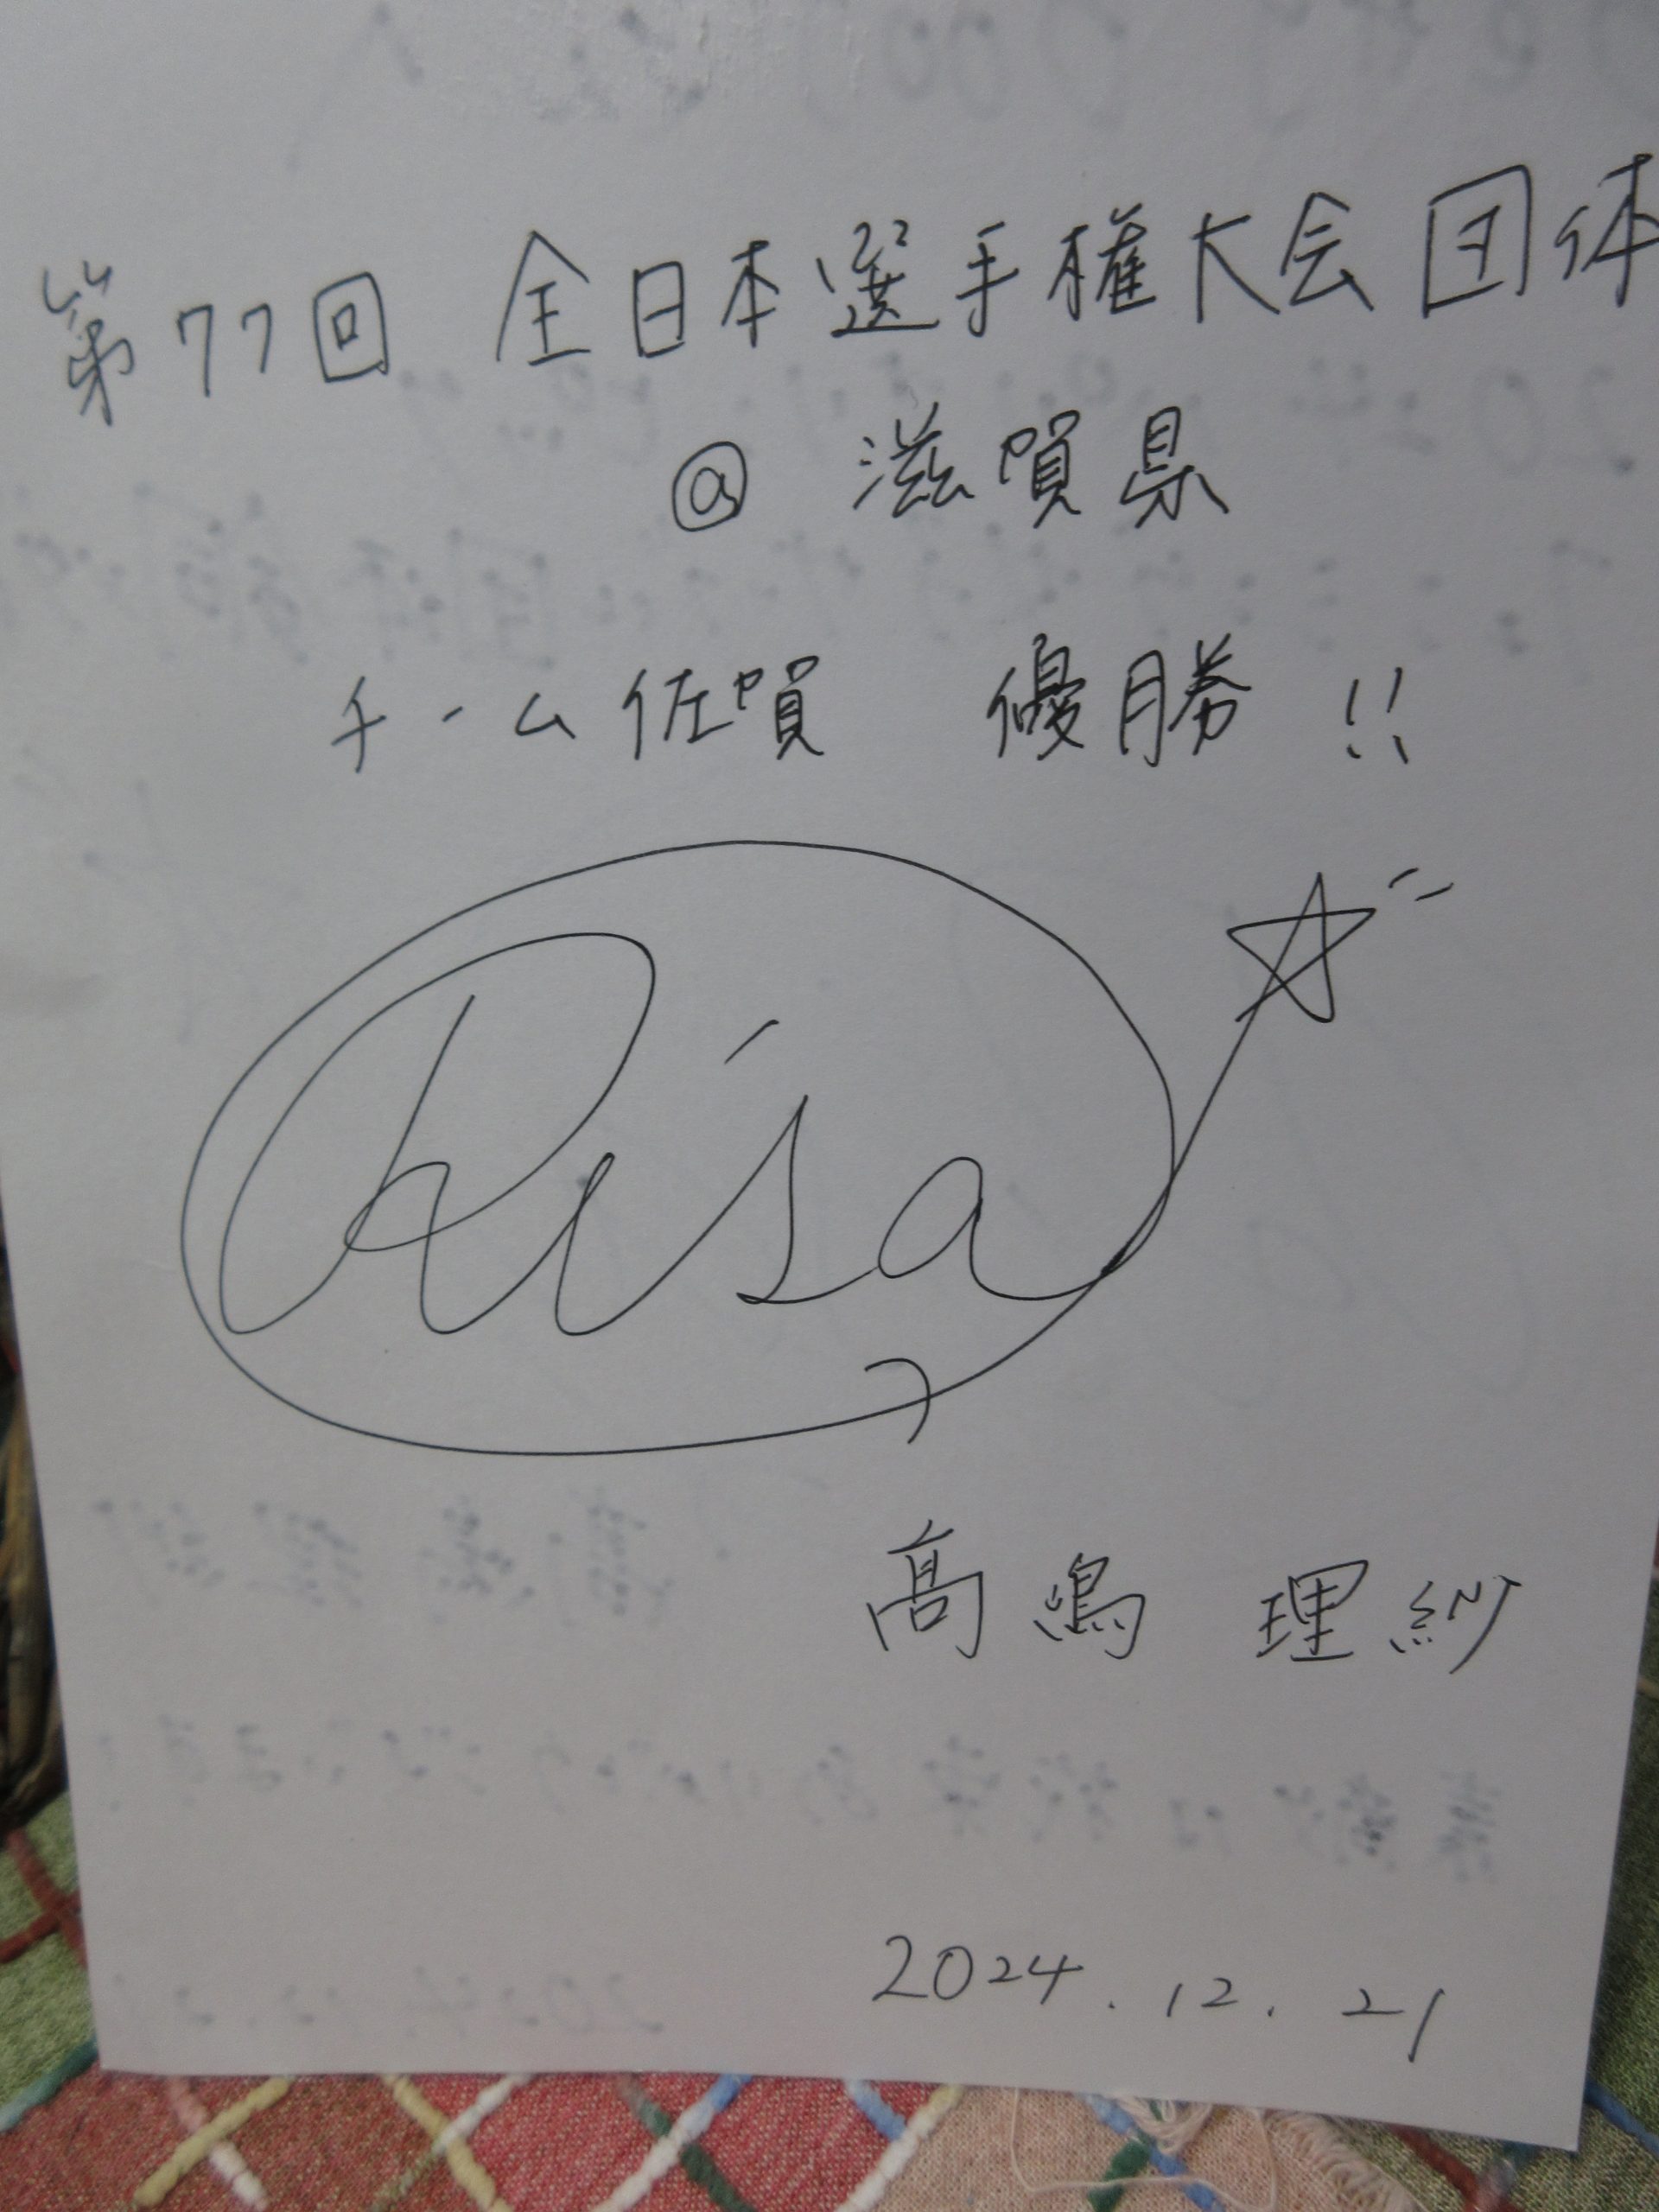 第77回 全日本選手権大会団体
@ 滋賀県
チーム佐賀 優勝!!
Risa
髙嶋 理紗
2024.12.21